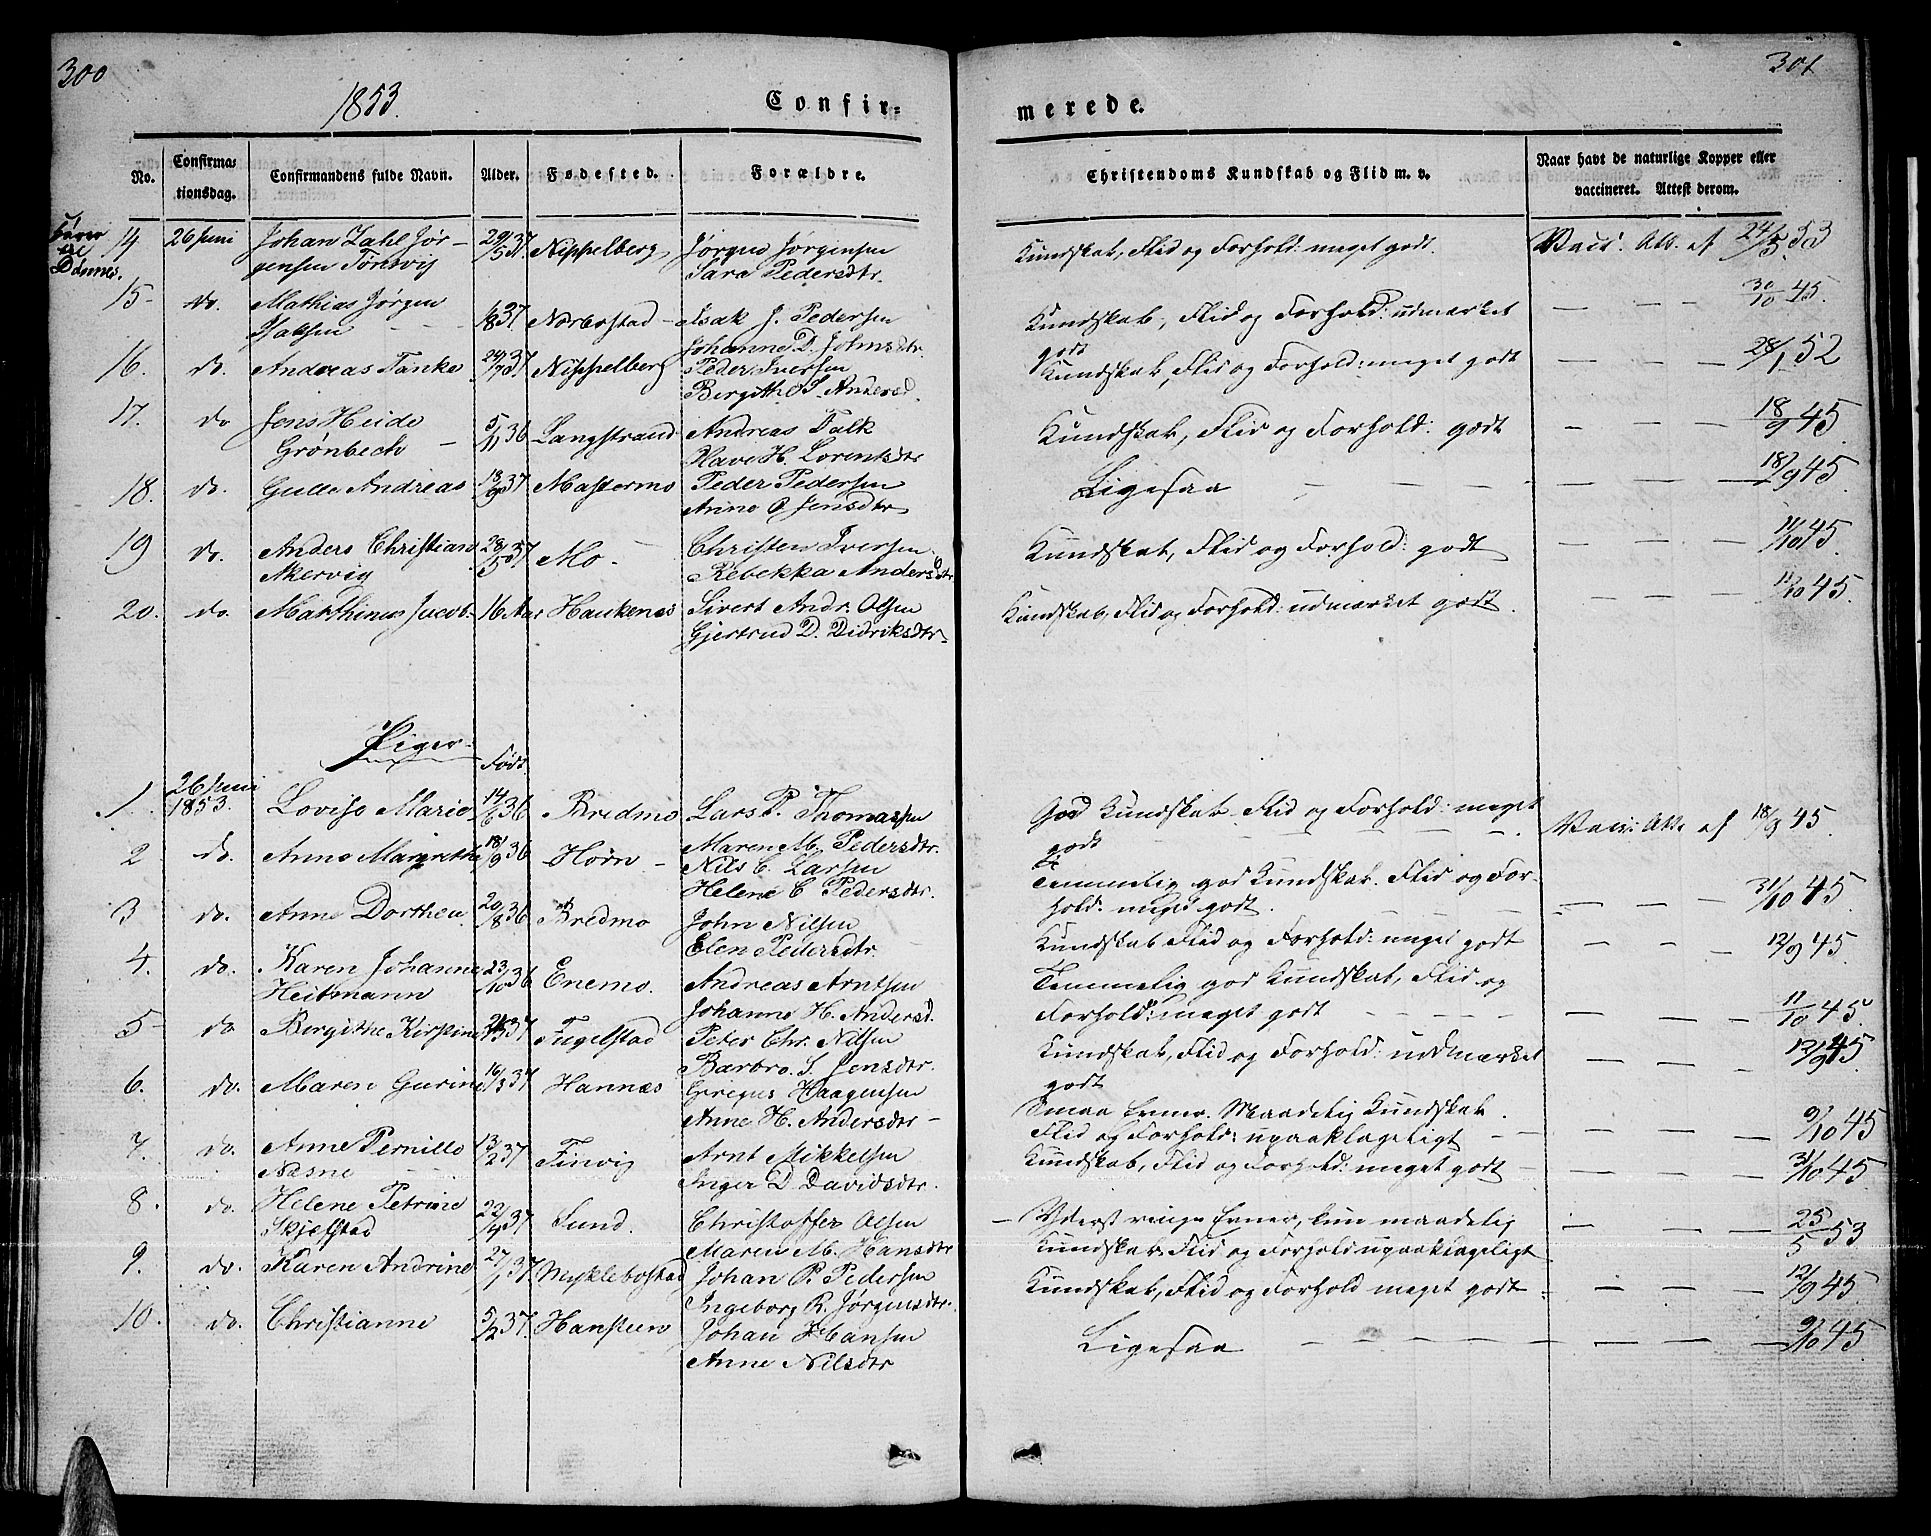 300
301
1853.
Confir-
merede.
No.
Confirma-
tionsdag.
Confirmandens fulde Navn.
Alder.
Fødested.
Forældre.
Christendoms Kundskab og Flid m. v.
Naar havt de naturlige Kopper eller
vaccineret. Attest derom.
til
Dønnes.
14 26 Juni Johan Zahl Jør- Nippelberg Jørgen Jørgensen Kundskab, Flid og Forhold: meget godt. Vacc. Att. af 24/5 53
gensen Sara Pedersdtr.
15 do. Mathias Jørgen 37 Norbostad Isak J. Pedersen Kundskab, Flid og Forhold: udmærket — — — 30/10 45.
Isaksen Johanne D. Johnsdtr godt
16. do. Andreas Tanke 24/7 37 Nippelberg Peder Iversen Kundskab, Flid og Forhold: meget godt — — — 28/1 52
Bergithe S. Andersd.
17. do Jens Heide 5/11 36 Langstrand Andreas Falk Kundskab, Flid og Forhold: godt — — — 18/9 45
Grønbech Olave H. Lorentsdtr
18. do. Gulle Andreas 37 Mastermo Peder Pedersen Ligesaa — — — 18/9 45
Anne P. Jensdtr
19 do. Anders Christian 28/5 37 Mo Christen Iversen Kundskab, Flid og Forhold: godt — — — 11/10 45.
Akervig Rebekka Andersdtr
20. do. Matthinus Jacob 16 Aar Haukenes Sivert Andr. Olsen Kundskab, Flid og Forhold: udmærket godt. — — — 11/10 45.
Gjertrud D. Didriksdtr
Piger
Født
1. 26 Juni 1853. Lovise Marie 14/6 36 Bredmo Lars P. Thomassen God Kundskab. Flid og Forhold: meget Vacc. Att. af 18/9 45.
Maren M. Pedersdtr. godt
2 do. Anne Margrethe 18/9 36 Horn Nils C. Larsen Temmelig god Kundskab. Flid og For-
Helene C Pedersdtr. hold: meget godt. — — — 31/10 45.
3 do. Anne Dorthea 20/8 36 Bredmo John Nilsen Kundskab Flid og Forhold: meget godt — — — 12/9 45
Elen Pedersdtr.
4. do. Karen Johanne 23/10 36 Enemo. Andreas Arntsen Temmelig god Kundskab, Flid og
Heitmann Johanne H. Andersd. Forhold: meget godt — — — 11/10 45.
5 do. Bergithe Kirstine 37 Fugelstad Peter Chr. Nilsen Kundskab, Flid og Forhold: udmærket — — — 12/9 45
Barbro S. Jensdtr. godt
6. do. Maren Gurine 16/3 37 Hannæs Gregus Haagensen Smaa Evner. Maadelig Kundskab.
Anne H. Andersdtr Flid og Forhold: upaaklageligt — — — 9/10 45
7. do. Anne Pernille 13/2 37 Finvig Arnt Mikkelsen Kundskab, Flid og Forhold: meget godt — — — 31/10 45
Næsne Inger D Davidsdtr.
8. do. Helene Petrine 37 Sund. Christoffer Olsen Yderst ringe Evner, kun maadelig — — — 25/5 53
Skjelstad Maren M. Hansdtr Kundskab. Flid og Forhold upaaklageligt
9. do. Karen Andrine 27/1 37 Myklebostad Johan P. Pedersen Kundskab, Flid og Forhold meget godt — — — 12/9 45
Ingeborg R. Jørgensdtr.
10. do. Christianne 5/2 37 Hansteen Johan Hansen Ligesaa — — — 9/10 45
Anne Nilsdtr